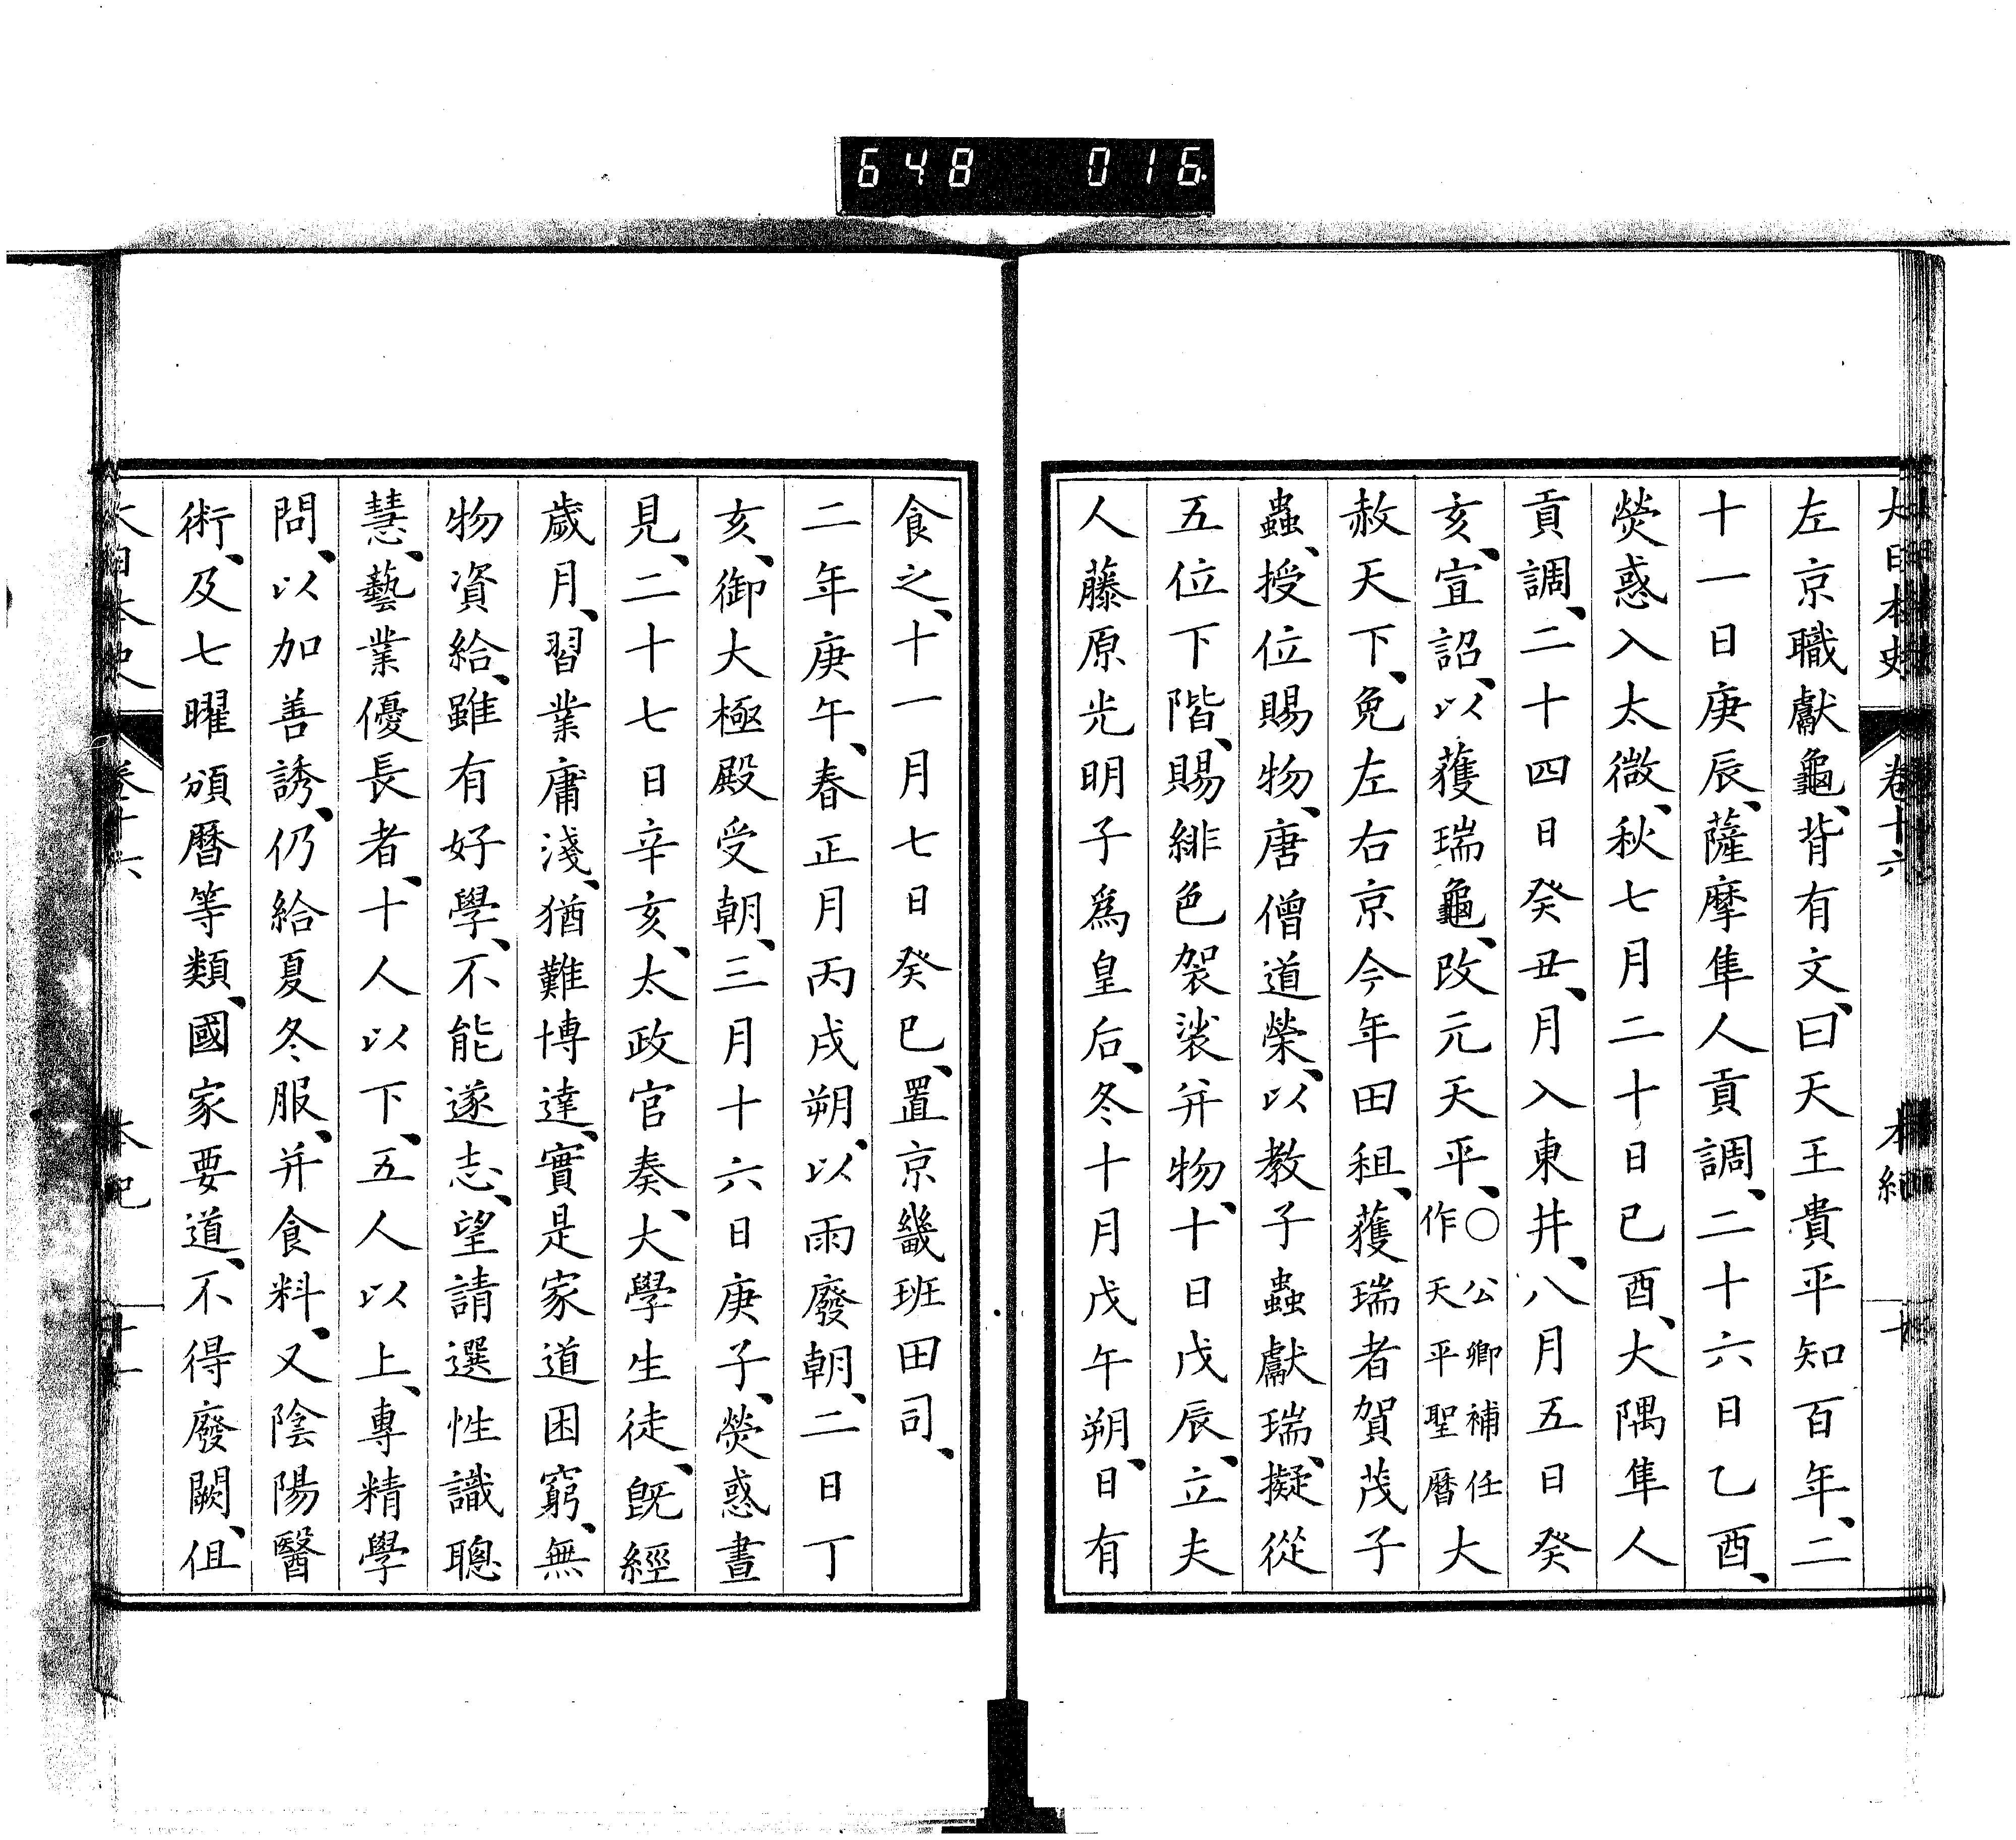 648 016
大日本史 卷十六 本紀 十
左京職獻龜、背有文、曰天王貴平知百年、二
十一日庚辰、薩摩隼人貢調、二十六日乙酉、
熒惑入太微、秋七月二十日己酉、大隅隼人
貢調、二十四日癸丑、月入東井、八月五日癸
亥、宣詔、以獲瑞龜、改元天平、○公卿補任作天平聖曆大
赦天下、免左右京今年田租、獲瑞者賀茂子
蟲、授位賜物、唐僧道榮、以教子蟲獻瑞、擬從
五位下階、賜緋色袈裟并物、十日戊辰、立夫
人藤原光明子爲皇后、冬十月戊午朔、日有
食之、十一月七日癸巳、置京畿班田司、
二年庚午、春正月丙戌朔、以雨廢朝、二日丁
亥、御大極殿受朝、三月十六日庚子、熒惑晝
見、二十七日辛亥、太政官奏、大學生徒、旣經
歲月、習業庸淺、猶難博達、實是家道困窮、無
物資給、雖有好學、不能遂志、望請選性識聰
慧、藝業優長者、十人以下、五人以上、專精學
問、以加善誘、仍給夏冬服、并食料、又陰陽醫
術、及七曜頒曆等類、國家要道、不得廢闕、但
大日本史 卷十六 本紀 十一